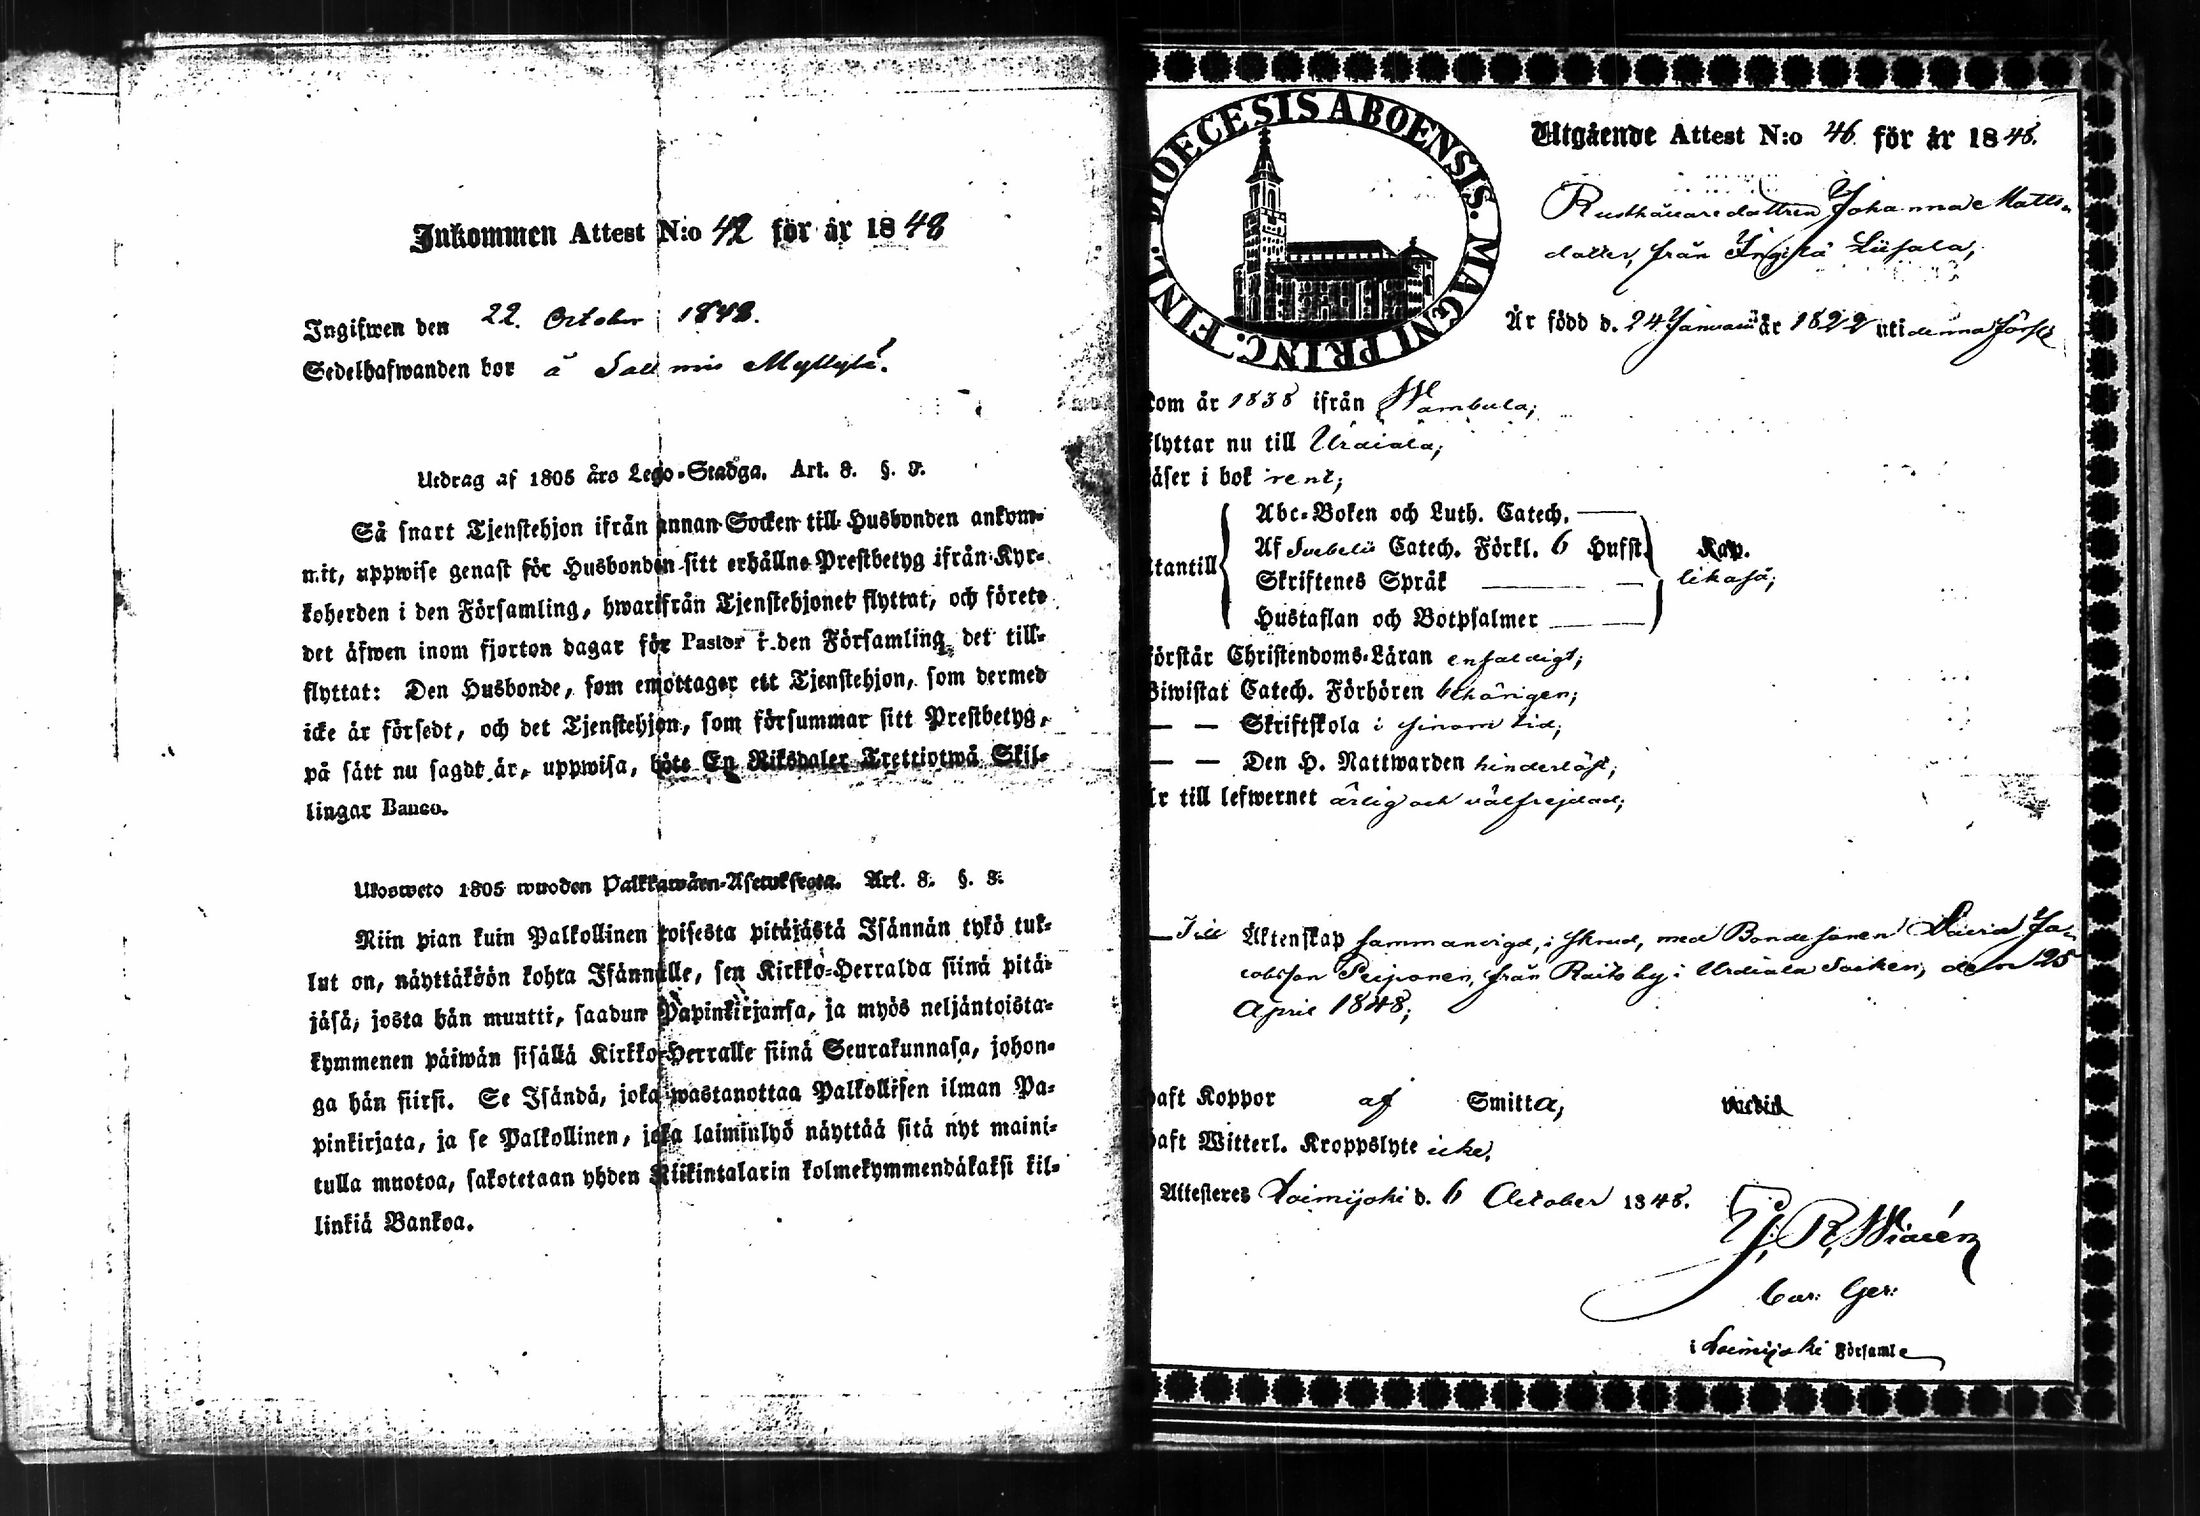 Inkommen Attest N:o 42 för år 1848
Ingifwen den 22. October 1848.
Sedelhafwanden bor å Salmis Myllylä.
Utdrag af 1805 års Lego-Stadga. Art. 8. §. 8.
Så snart Tjenstehjon ifrån annan Socken till Husbonden ankom-
mit, uppwise genast för Husbonden sitt erhållne Prestbetyg ifrån Kyr-
koherden i den Församling, hwarifrån Tjenstehjonet flyttat, och förete
det äfwen inom fjorton dagar för Pastor i den Församling det till-
flyttat: Den Husbonde, som emottager ett Tjenstehjon, som dermed
icke är försedt, och det Tjenstehjon, som försummar sitt Prestbetyg,
på sätt nu sagdt är, uppwisa, böte En Riksdaler Trettiotwå Skil-
lingar Banco.
Ulosweto 1805 wuoden Palkkawäen-Asetuksesta. Art. 8. §. 8.
Niin pian kuin Palkollinen toisesta pitäjästä Isännän tykö tul-
lut on, näyttäköön kohta Isännälle, sen Kirkko-Herralda siinä pitä-
jäsä, josta hän muutti, saadun Papinkirjansa, ja myös neljäntoista-
kymmenen päiwän sisällä Kirkko-Herralle siinä Seurakunnasa, johon-
ga hän siirsi. Se Isändä, joka wastanottaa Palkollisen ilman Pa-
pinkirjata, ja se Palkollinen, joka laiminlyö näyttää sitä nyt maini-
tulla muotoa, sakotetaan yhden Riikintalarin kolmekymmendäkaksi kil-
linkiä Bankoa.
DIOECESIS ABOENSIS. MAGNI PRINC. FINL.
Utgående Attest N:o 46 för år 1848.
Rusthållaredottren Johanna Matts-
dotter, från Ingilä Liisala,
Är född d. 24 Januarii år 1822 uti denna Förs:
kom år 1838 ifrån Wambula;
flyttar nu till Urdiala;
läser i bok rent;
Abc-Boken och Luth. Catech.
utantill Af Svebelii Catech. Förkl. 6 Hufst. Kap.
Skriftenes Språk likaså;
Hustaflan och Botpsalmer
förstår Christendoms-Läran enfaldigt;
Biwistat Catech. Förhören behörigen;
— — Skriftskola i sinom tid;
— — Den H. Nattwarden hinderlöst;
Är till lefwernet ärlig och välfrejdad;
— Till Äktenskap sammanvigd, i Skrud, med Bondesonen David Ja-
cobsson Peiponen, från Raito by i Urdiala Socken, den 25
April 1848;
haft Koppor af Smitta;
haft Witterl. Kroppslyte icke.
Attesteres Loimijoki d. 6 October 1848.
Cur: Ger:
i Loimijoki Församl